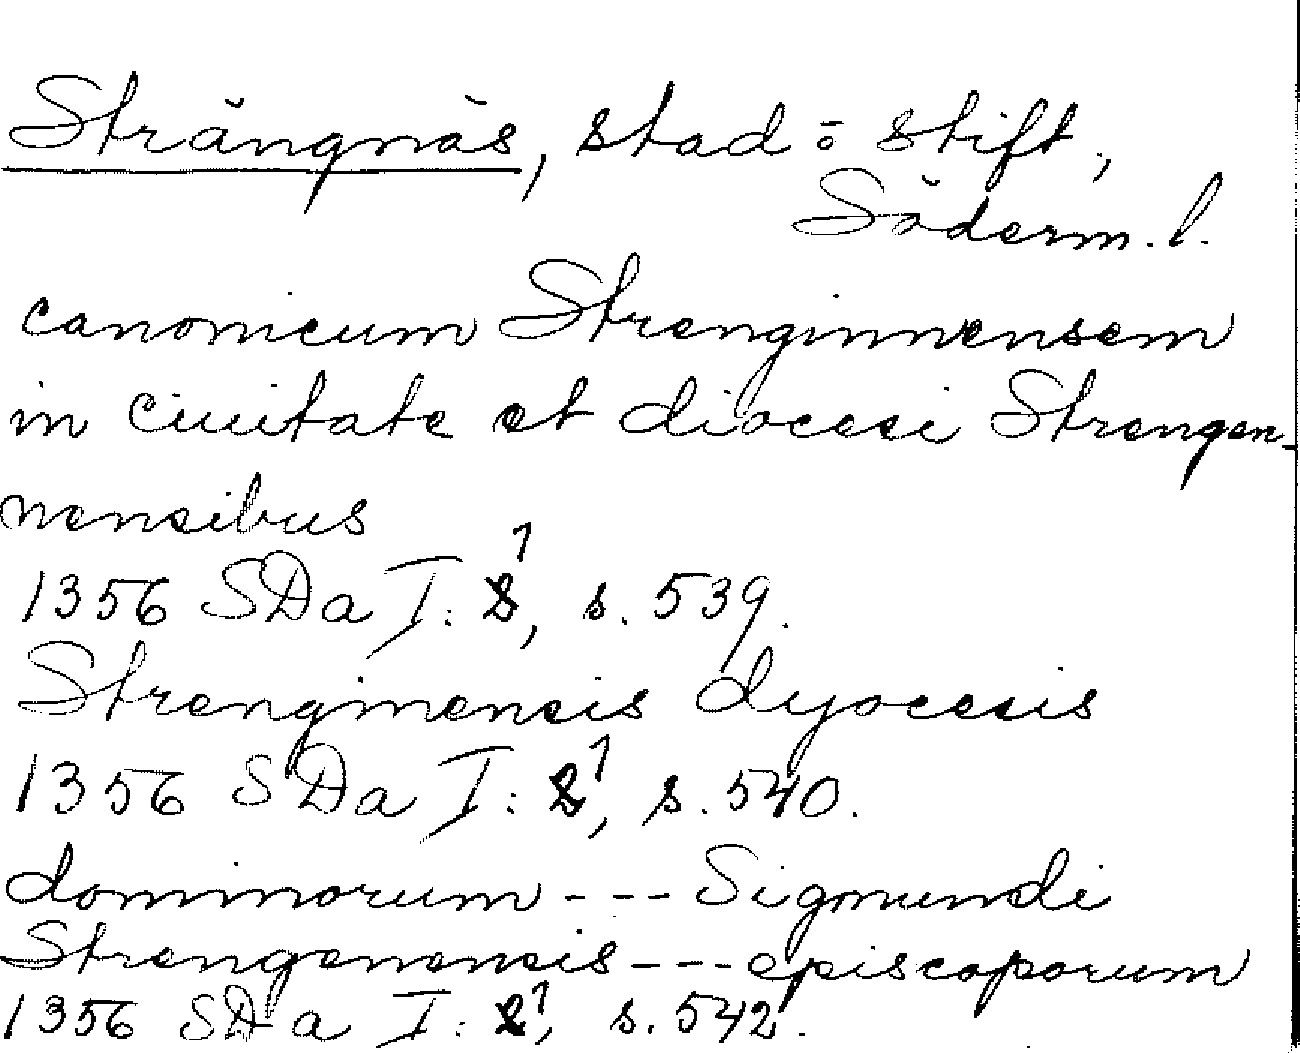 Strängnäs, stad o. stift,
Söderm. l.
canonicum Strenginnensem
in ciuitate et diocesi Strengen-
nensibus
1356 SDa I: 1, s. 539.
Strenginensis dyocesis
1356 SDa I: 1, s. 540.
dominorum --- Sigmundi
Strengenensis --- episcoporum
1356 SDa I: 1, s. 542.